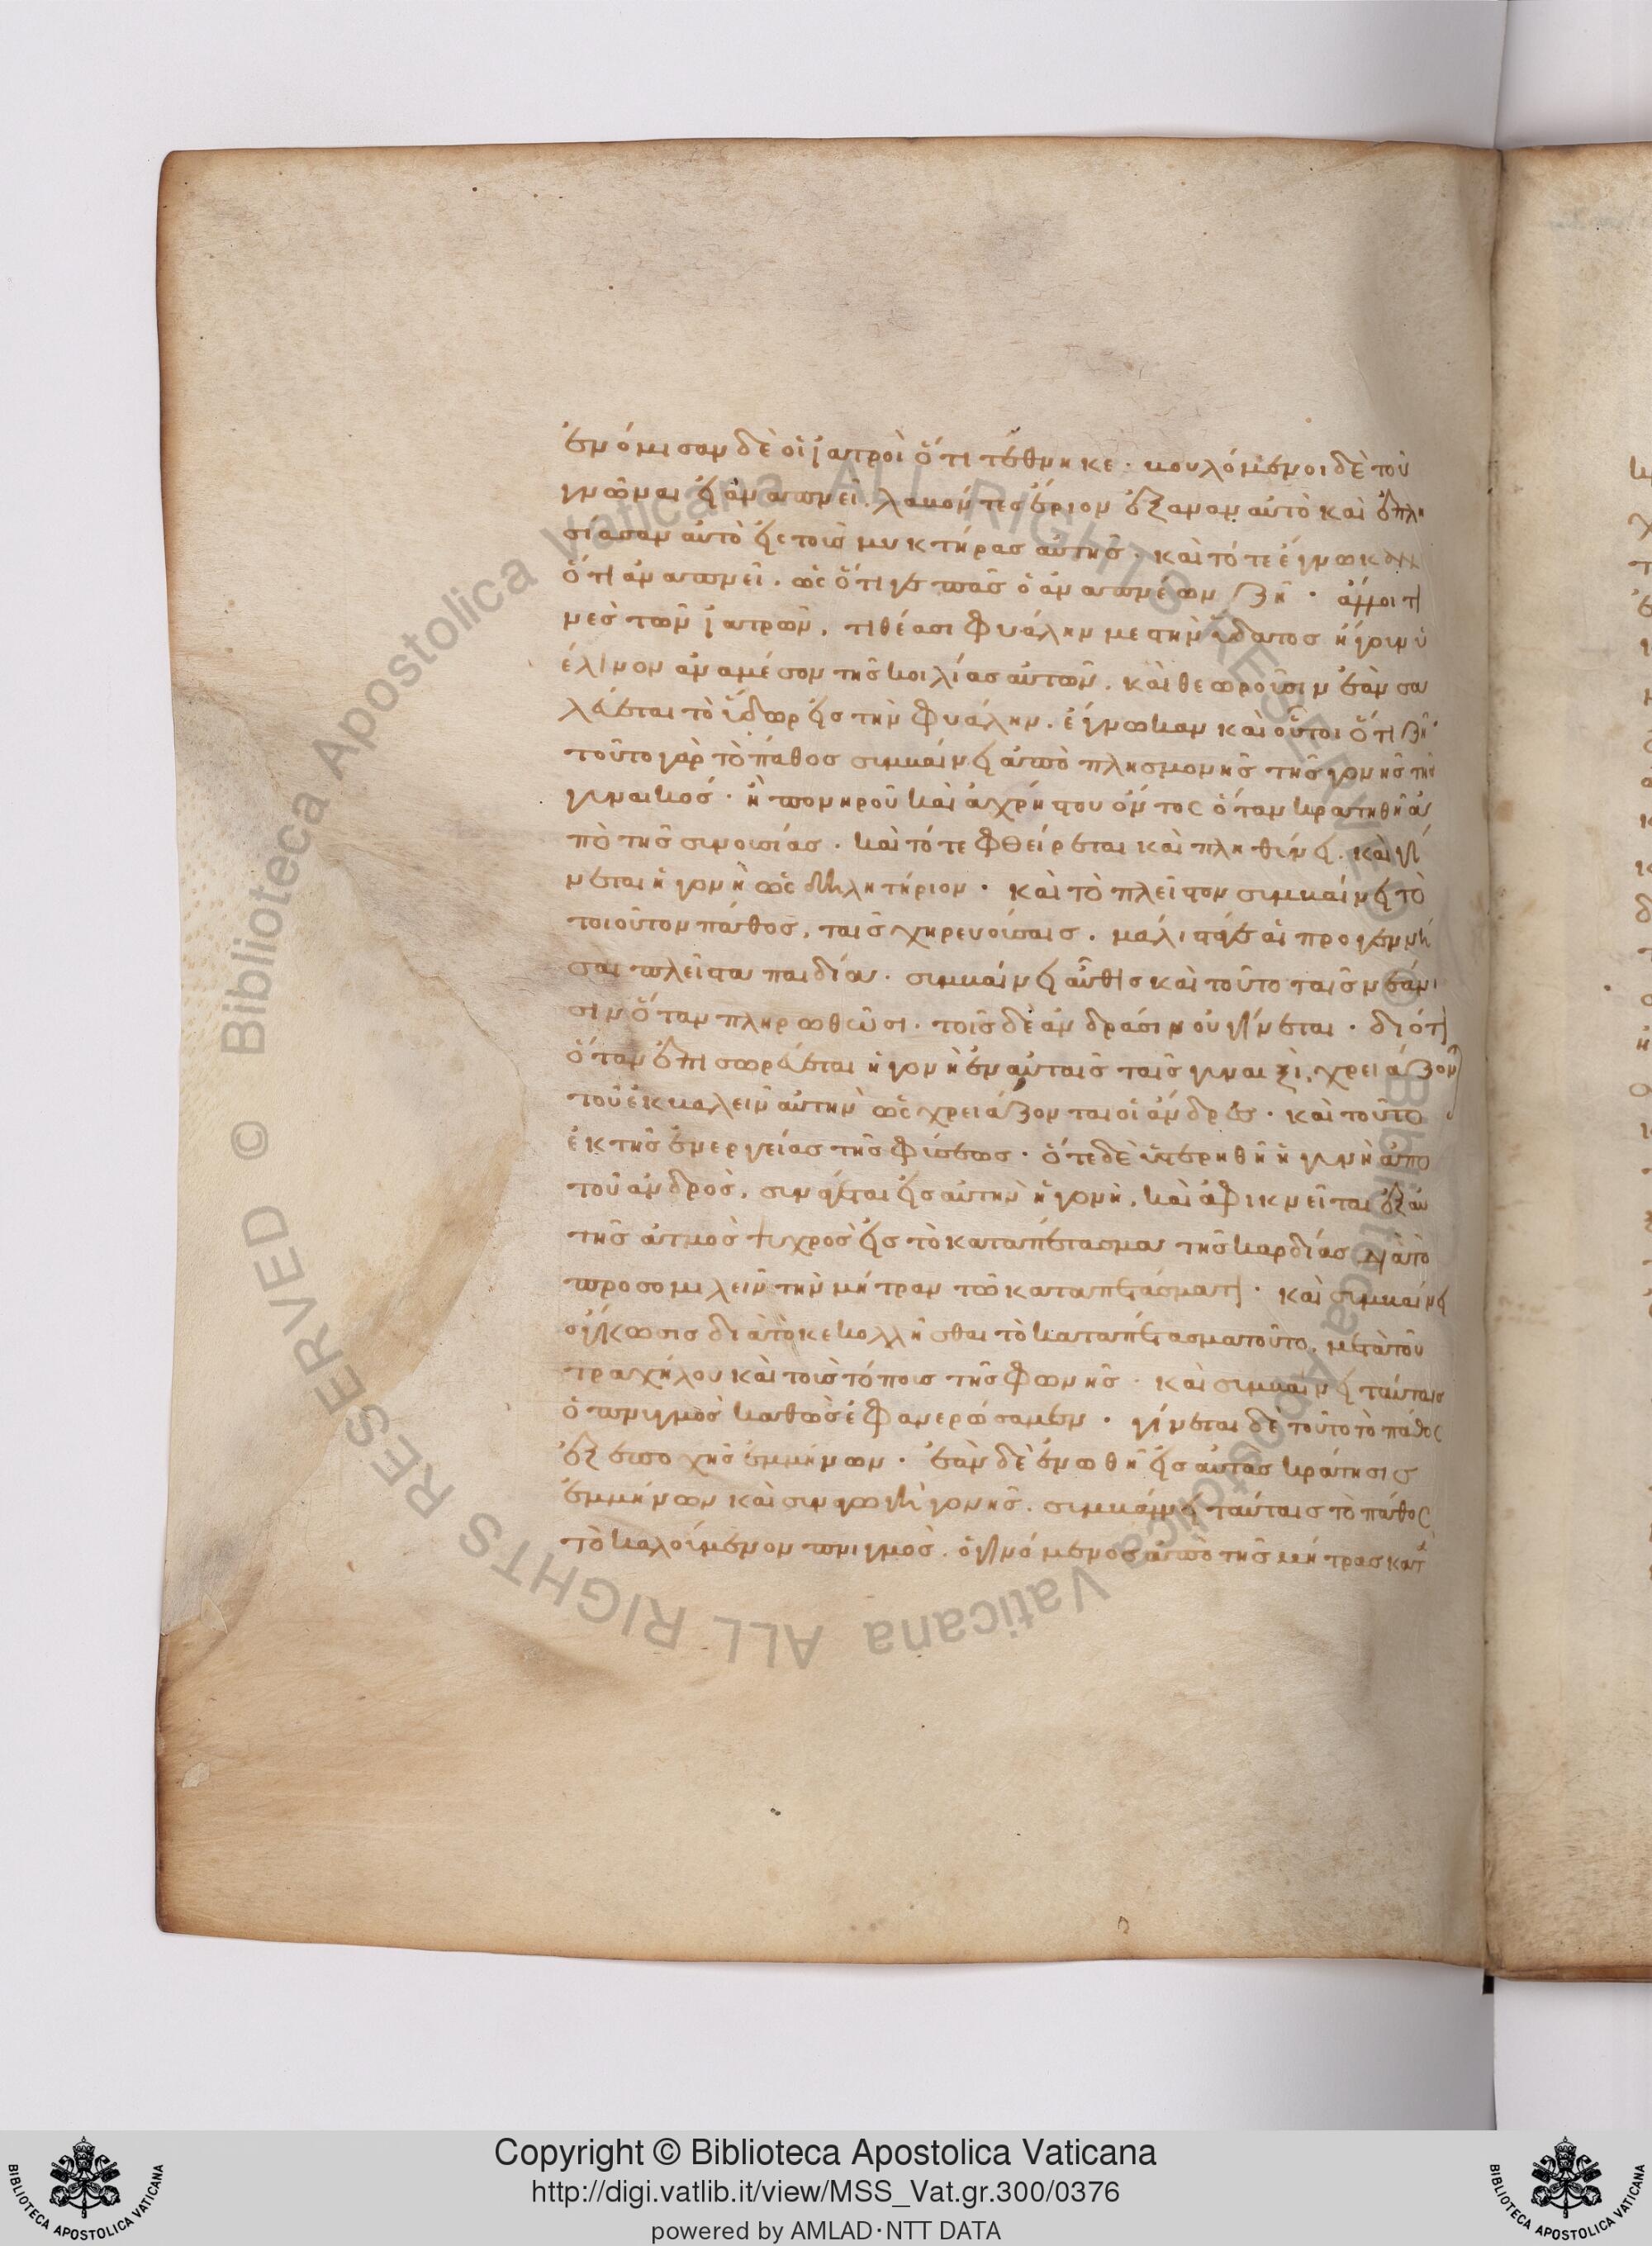 ἐνόμισαν δὲ οἱ ἰατροὶ ὅτι τέθνηκε · βουλόμενοι δὲ τοῦ
γνῶναι εἰ ἀναπνεῖ. λαβόντες ἔριον ἔξαναν αὐτὸ καὶ ἐπλη
σίασαν αὐτὸ εἰς τοῖς μυκτήρας αὐτῆς · καὶ τότε ἔγνωκαν
ὅτι ἀναπνεῖ. ὡς ὅτι γε πᾶς ὁ ἀναπνέων ζῆ · ἄλλοι τι
νες τῶν ἰατρῶν, τιθέασι φυάλην μεστὴν ὕδατος ἢ γοῦν ὑ
έλινον ἀναμέσον τῆς κοιλίας αὐτῶν. καὶ θεωροῦσιν ἐὰν σα
λεύεται τὸ ὕδωρ εἰς τὴν φυάλην. ἔγνωκαν καὶ οὗτοι ὅτι ζῆ·
τοῦτο γὰρ τὸ πάθος συμβαίνει ἀπὸ πλησμονῆς τῆς γονῆς τῆς
γυναικός · ἢ πονηροῦ καὶ ἀχρήστου ὄντος ὅταν κρατηθῆ ἀ
πὸ τῆς συνουσίας · καὶ τότε φθείρεται καὶ πληθύνει. καὶ γί
νεται ἡ γονὴ ὡς δηλητήριον · καὶ τὸ πλεῖστον συμβαίνει τὸ
τοιοῦτον πάθος, ταῖς χηρευούσαις. μάλιστα εἰ προγεννή
σαι πλεῖστα παιδία. συμβαίνει αὖθις καὶ τοῦτο ταῖς νεάνι
σιν ὅταν πληρωθῶσι. τοῖς δὲ ἀνδράσιν οὐ γίνεται · διότι
ὅταν ἐπισωρεύεται ἡ γονὴ ἐν αὐταῖς ταῖς γυναιξὶ, χρειάζον
τοῦ ἐκβαλεῖν αὐτὴν ὡς χρειάζονται οἱ ἄνδρες · καὶ τοῦτο
ἐκ τῆς ἐνεργείας τῆς φύσεως · ὅτε δὲ ὑστερηθῆ ἡ γυνὴ ἀπο
τοῦ ἀνδρὸς, συνάγεται εἰς αὐτὴν ἡ γονὴ, καὶ ἀφικνεῖται ἐξ αὐ
τῆς ἀτμὸς ψυχρὸς εἰς τὸ καταπέτασμα τῆς καρδίας διὰ τὸ
προσομιλεῖν τὴν μήτραν τῶ καταπετάσματι · καὶ συμβαίνει
ὄγκωσις διὰ τὸ κεκολλῆσθαι τὸ καταπέτασμα τοῦτο, μετὰ τοῦ
τραχήλου καὶ τοῖς τόποις τῆς φωνῆς · καὶ συμβαίνει ταύταις
ὁ πνιγμὸς καθὼς ἐφανερώσαμεν · γίνεται δὲ τοῦτο τὸ πάθος
ἐξ ἐποχῆς ἐμμήνων · ἐὰν δὲ ἑνωθῆ εἰς αὐτὰς κράτησις
ἐμμήνων καὶ συναγωγὴ γονῆς. συμβαίνει ταύταις τὸ πάθος
τὸ καλούμενον πνιγμὸς. ὁ γινόμενος ἀπὸ τῆς μήτρας κατ